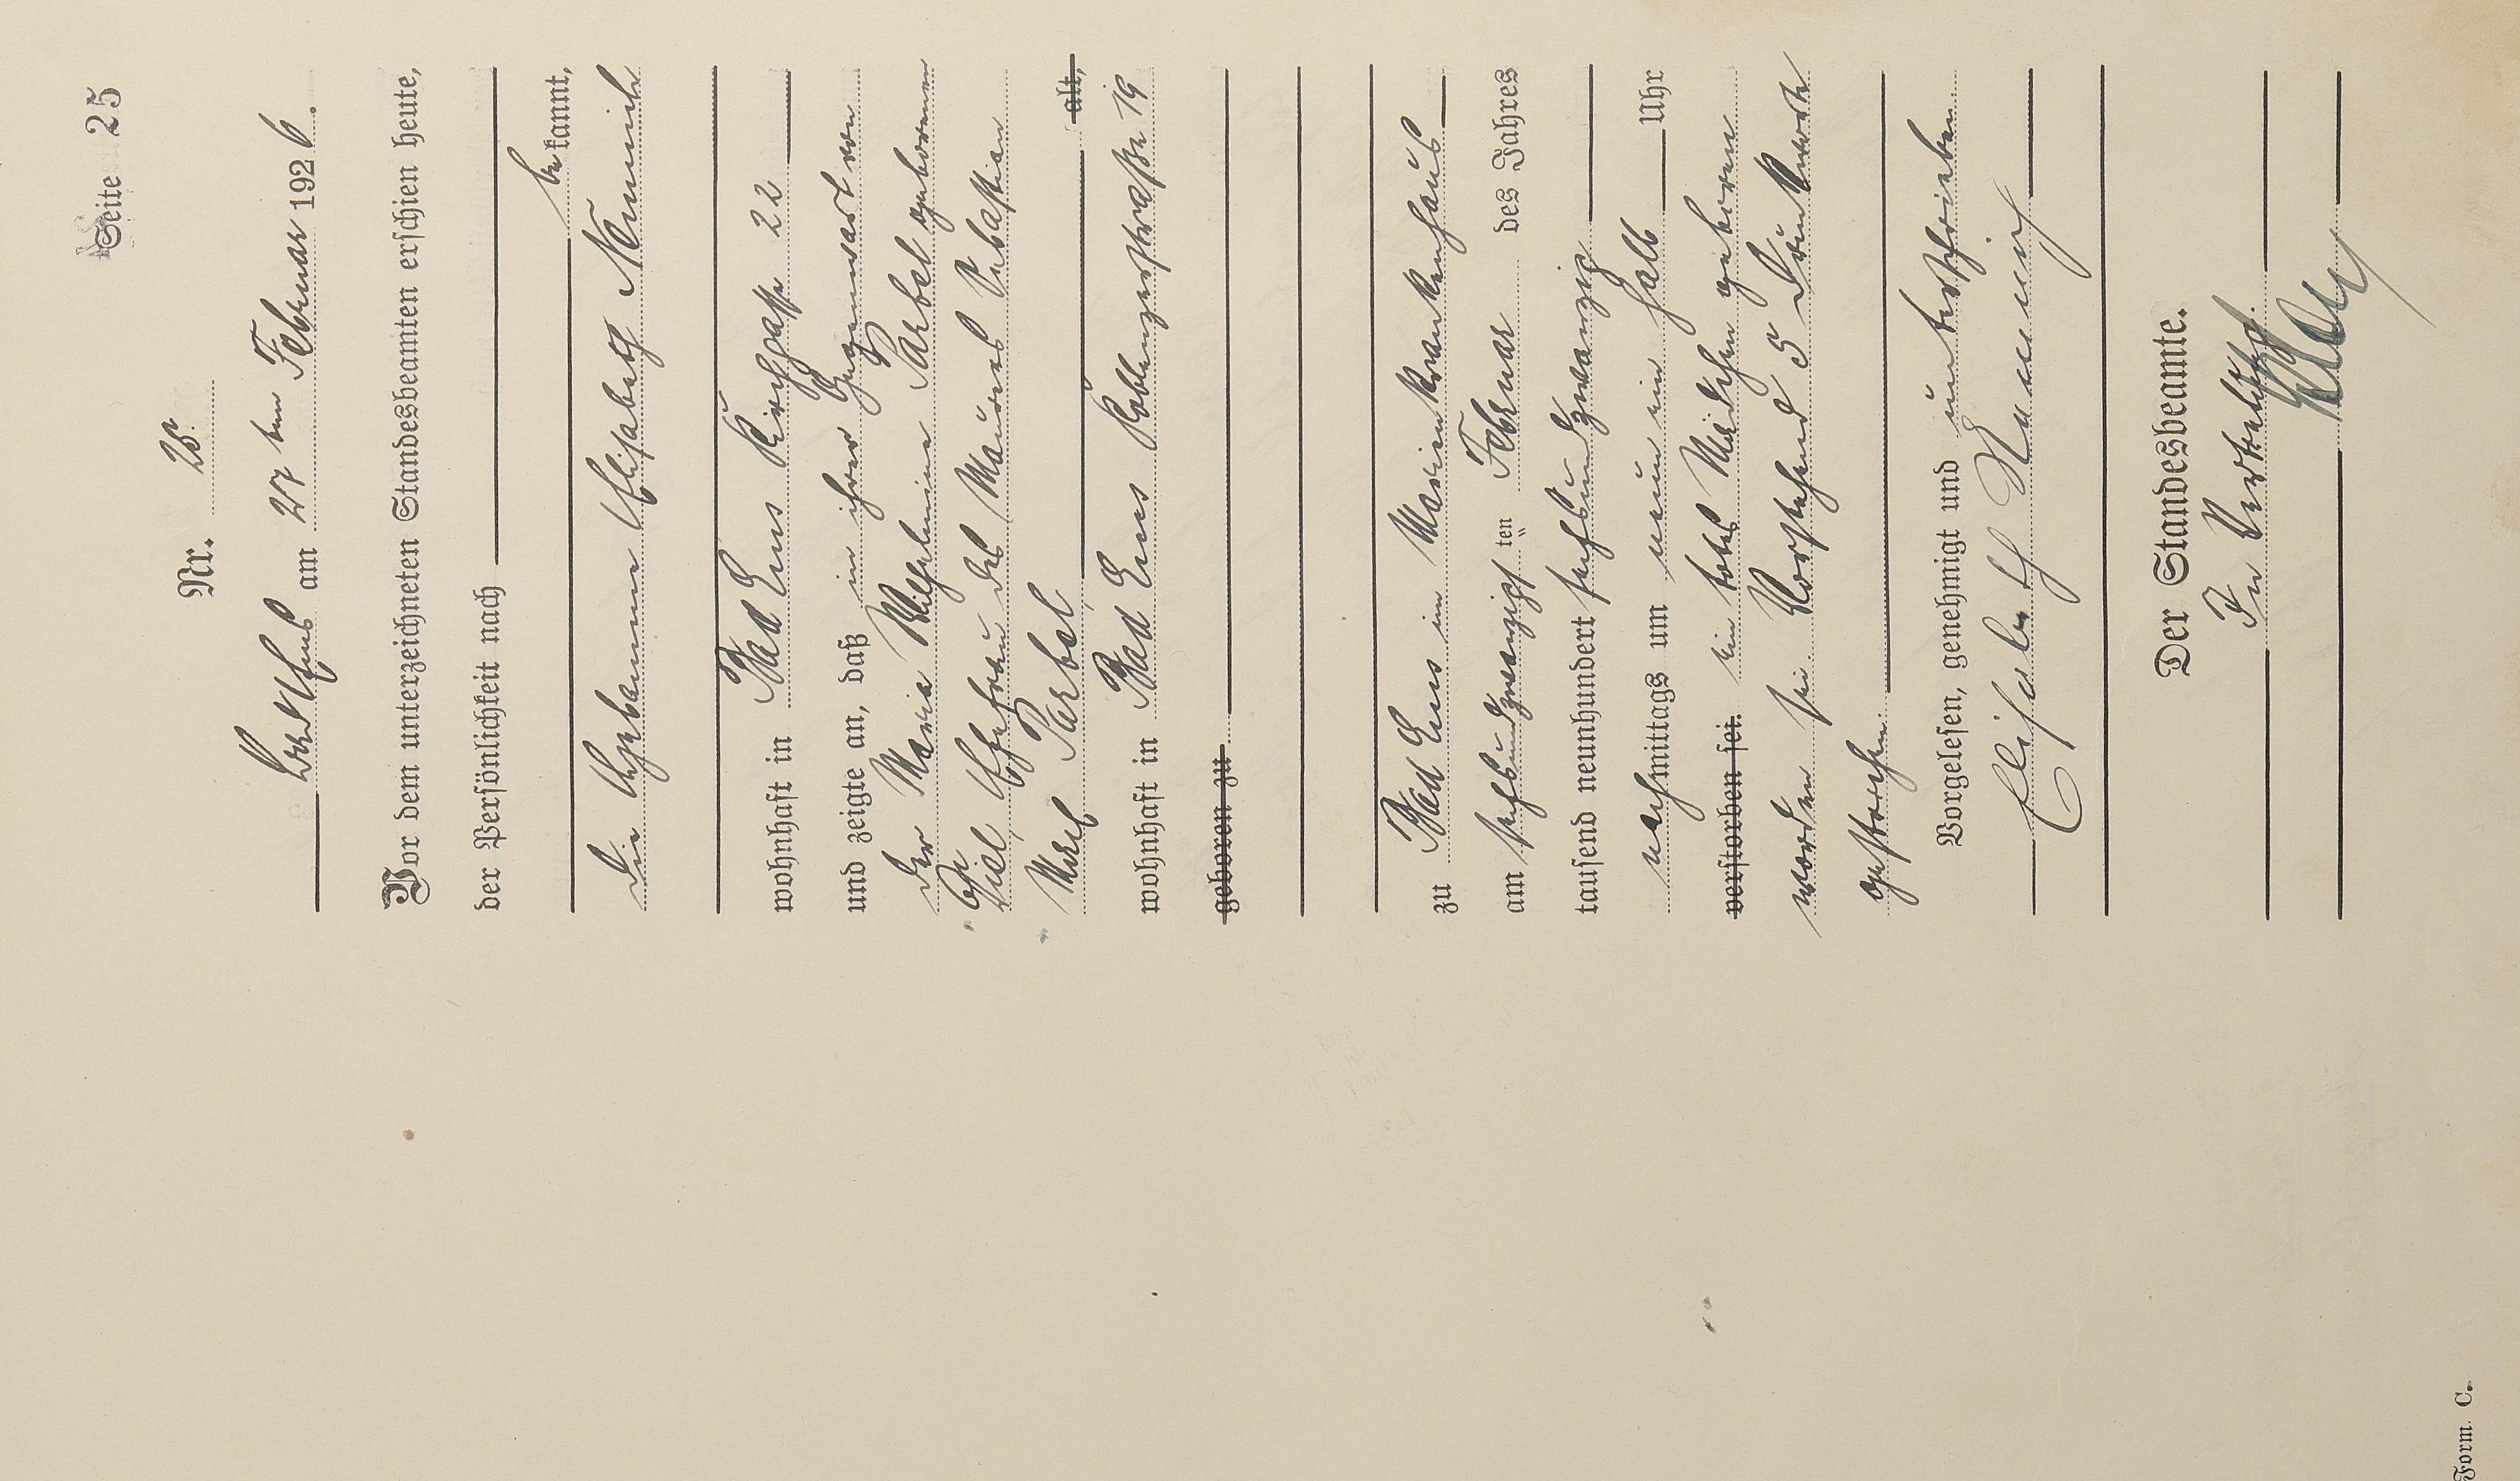 Seite 25
Nr. 25.
Bad Ems am 27 ten Februar 1926.
Vor dem unterzeichneten Standesbeamten erschien heute,
der Persönlichkeit nach
bekannt,
die Hebamme Elisabeth Nunich
wohnhaft in Bad Ems Kirchgasse 22
und zeigte an, daß in ihrer Gegenwart von
der Maria Wilhelmine Sarbel geborenen
Diel, Ehefrau des Maurers Sebastian
Sarbel, alt,
wohnhaft in Bad Ems Koblenzerstrasse 19
geboren zu
zu Bad Ems im Marienkrankenhaus
am sechsundzwanzigsten Februar des Jahres
tausend neunhundert sechsundzwanzig
nachmittags um neun ein halb Uhr
verstorben sei. ein totes Mädchen geboren
worden sei. Vorstehend 5 Druckworte
gestrichen.
Vorgelesen, genehmigt und unterschrieben
Elisabeth Nunich
Der Standesbeamte.
In Vertretung.
Form. C.